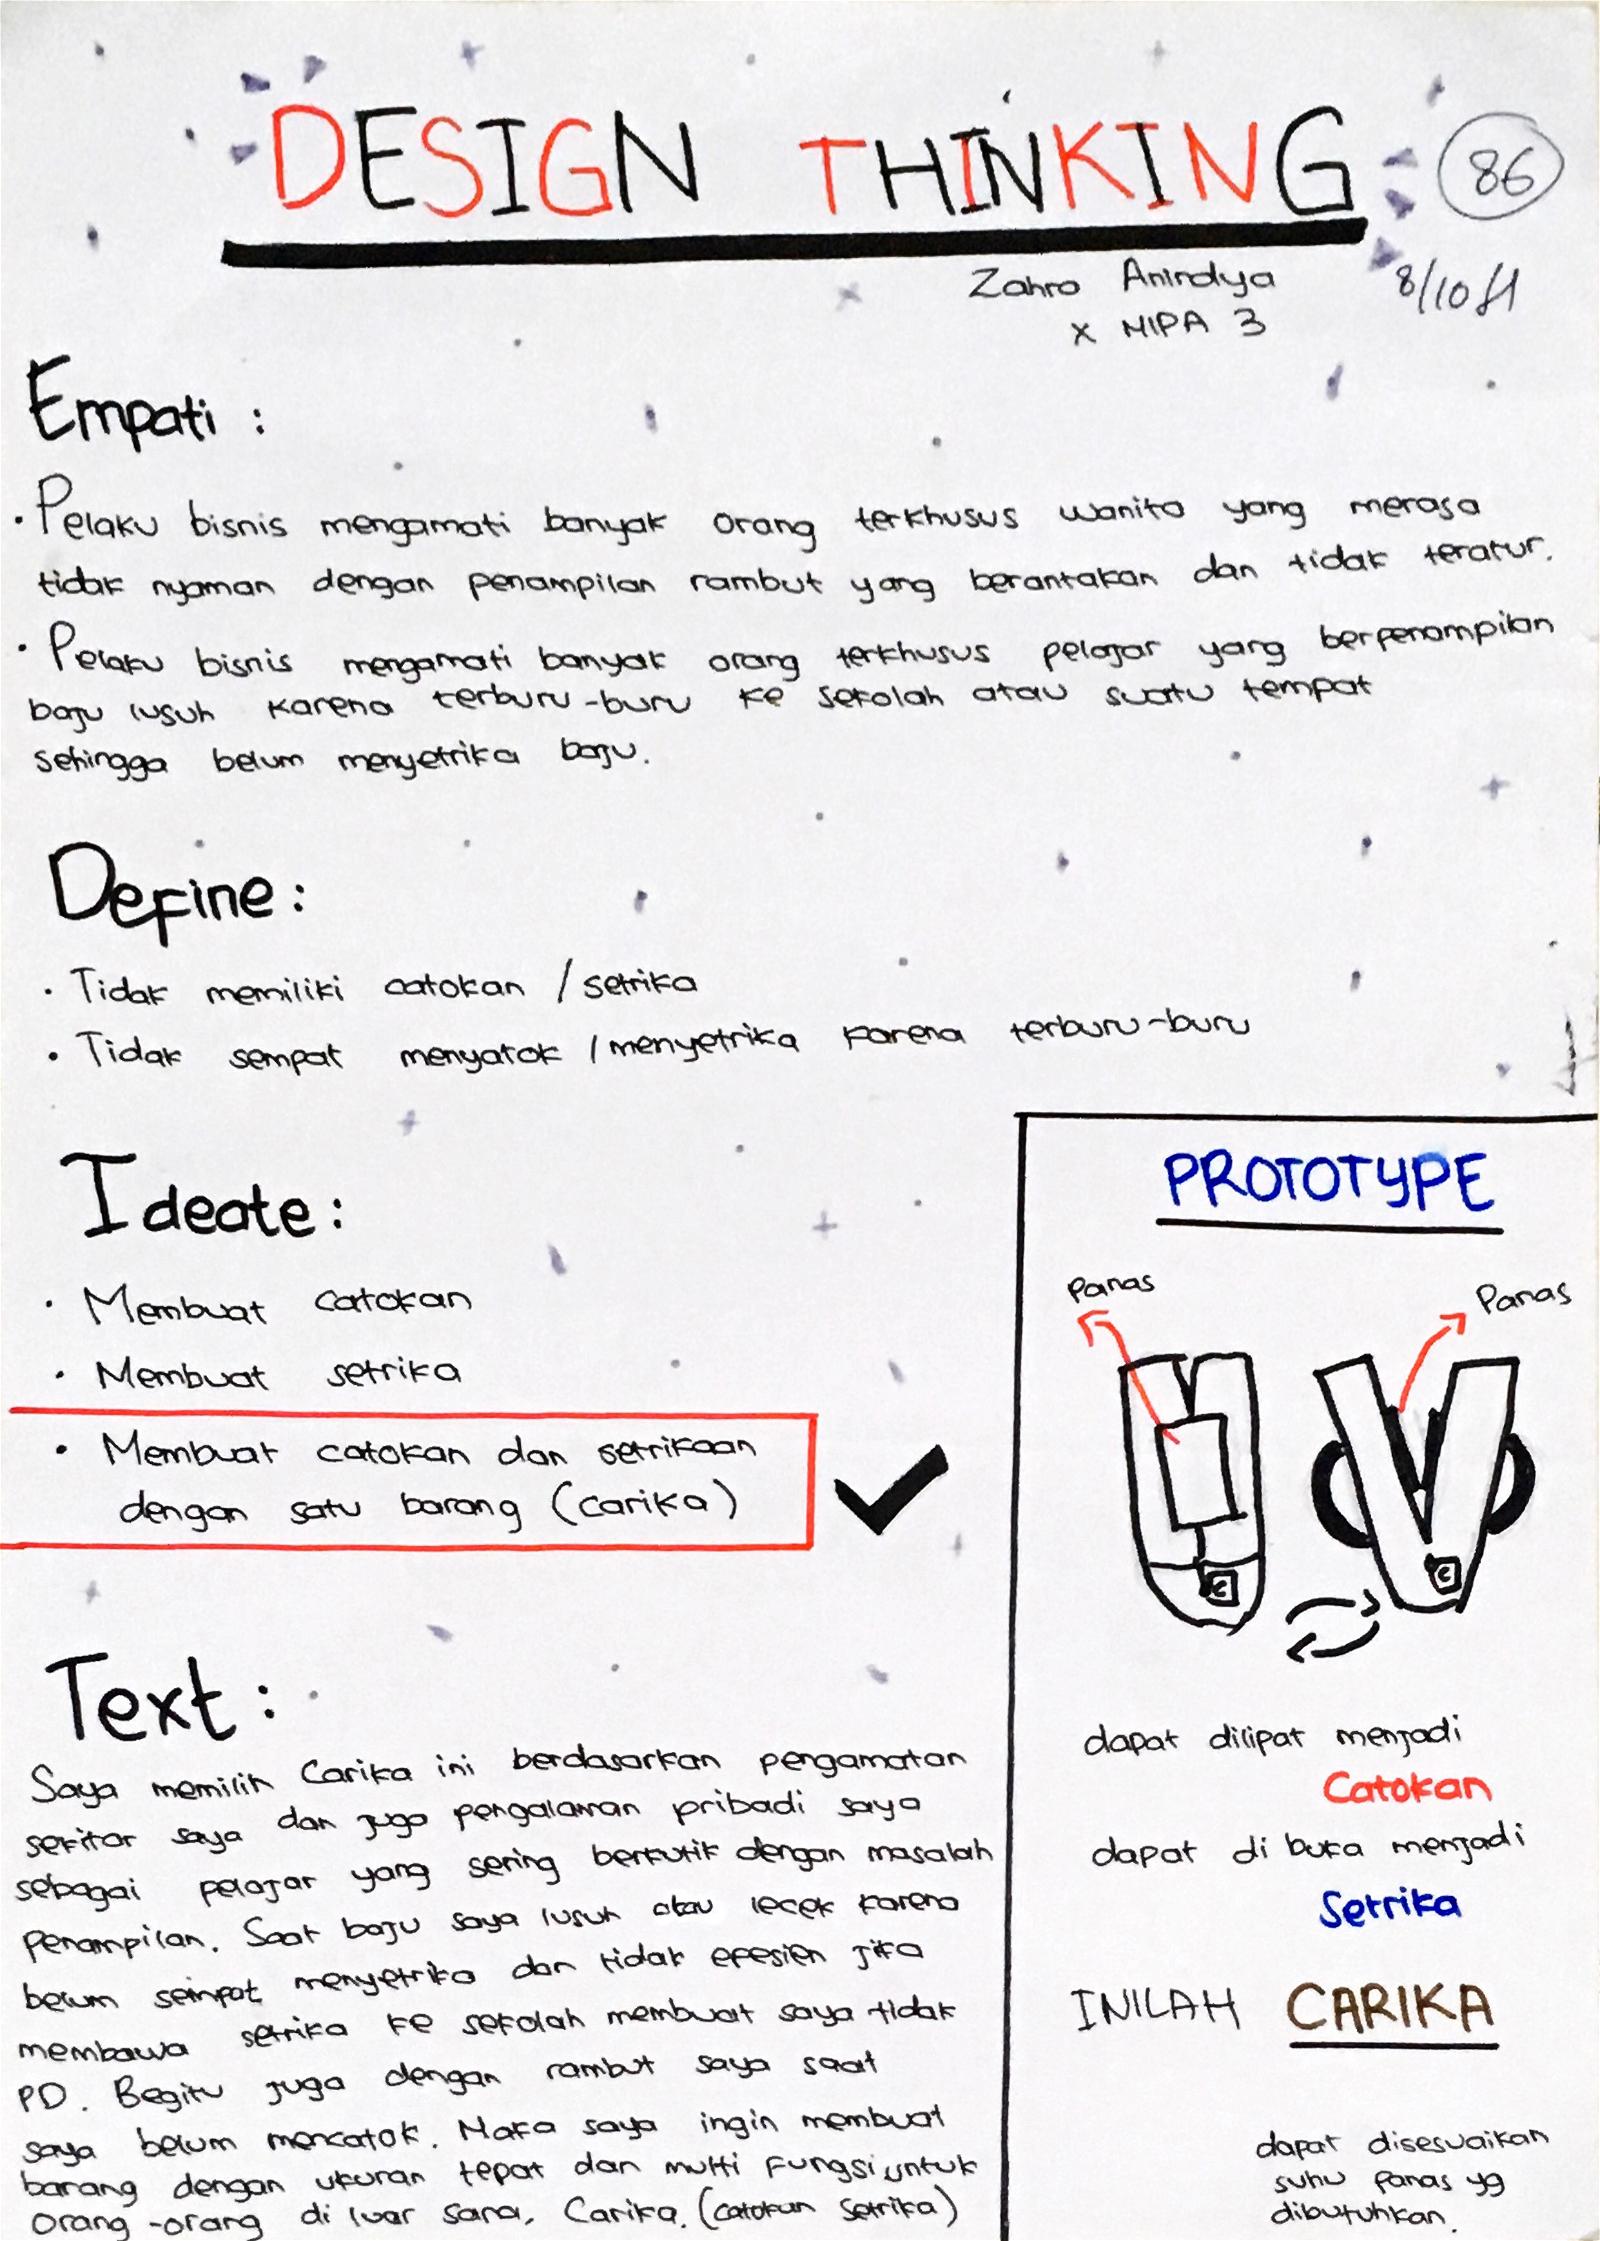 DESIGN THINKING
86
Zahra Anindya
X MIPA 3
8/10
Empati :
• Pelaku bisnis mengamati banyak orang terkhusus wanita yang merasa
tidak nyaman dengan penampilan rambut yang berantakan dan tidak teratur.
• Pelaku bisnis mengamati banyak orang terkhusus pelajar yang berpenampilan
baju lusuh karena terburu-buru ke sekolah atau suatu tempat
sehingga belum menyetrika baju.
Define :
• Tidak memiliki catokan / setrika
• Tidak sempat menyatok / menyetrika karena terburu-buru
Ideate :
• Membuat catokan
• Membuat setrika
• Membuat catokan dan setrikaan
dengan satu barang (carika)
Text :
Saya memilih Carika ini berdasarkan pengamatan
sekitar saya dan juga pengalaman pribadi saya
sebagai pelajar yang sering berkutik dengan masalah
penampilan. Saat baju saya lusuh atau lecek karena
belum sempat menyetrika dan tidak efesien jika
membawa setrika ke sekolah membuat saya tidak
PD. Begitu juga dengan rambut saya saat
saya belum mencatok. Maka saya ingin membuat
barang dengan ukuran tepat dan multi fungsi untuk
orang-orang di luar sana, Carika. (catokan setrika)
PROTOTYPE
Panas
Panas
C
C
dapat dilipat menjadi
Catokan
dapat di buka menjadi
Setrika
INILAH CARIKA
dapat disesuaikan
suhu panas yg
dibutuhkan.